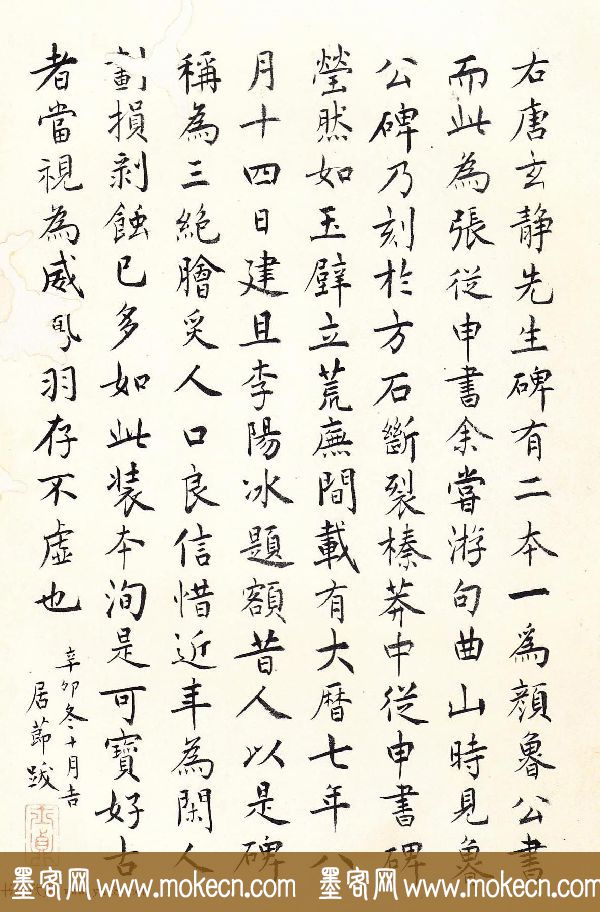 右唐玄静先生碑有二本一為顔魯公書
而此為張從申書余嘗游句曲山時見魯
公碑乃刻於方石斷裂榛莽中從申書碑
瑩然如玉壁立荒廡間載有大曆七年八
月十四日建且李陽冰題額昔人以是碑
稱為三絶膾炙人口良信惜近年為閑人
劃損剥蝕已多如此装本洵是可寶好古
者當視為威鳳羽存不虛也
辛卯冬十月吉
居節跋
墨客网 www.mokecn.com 墨客网 www.mokecn.com